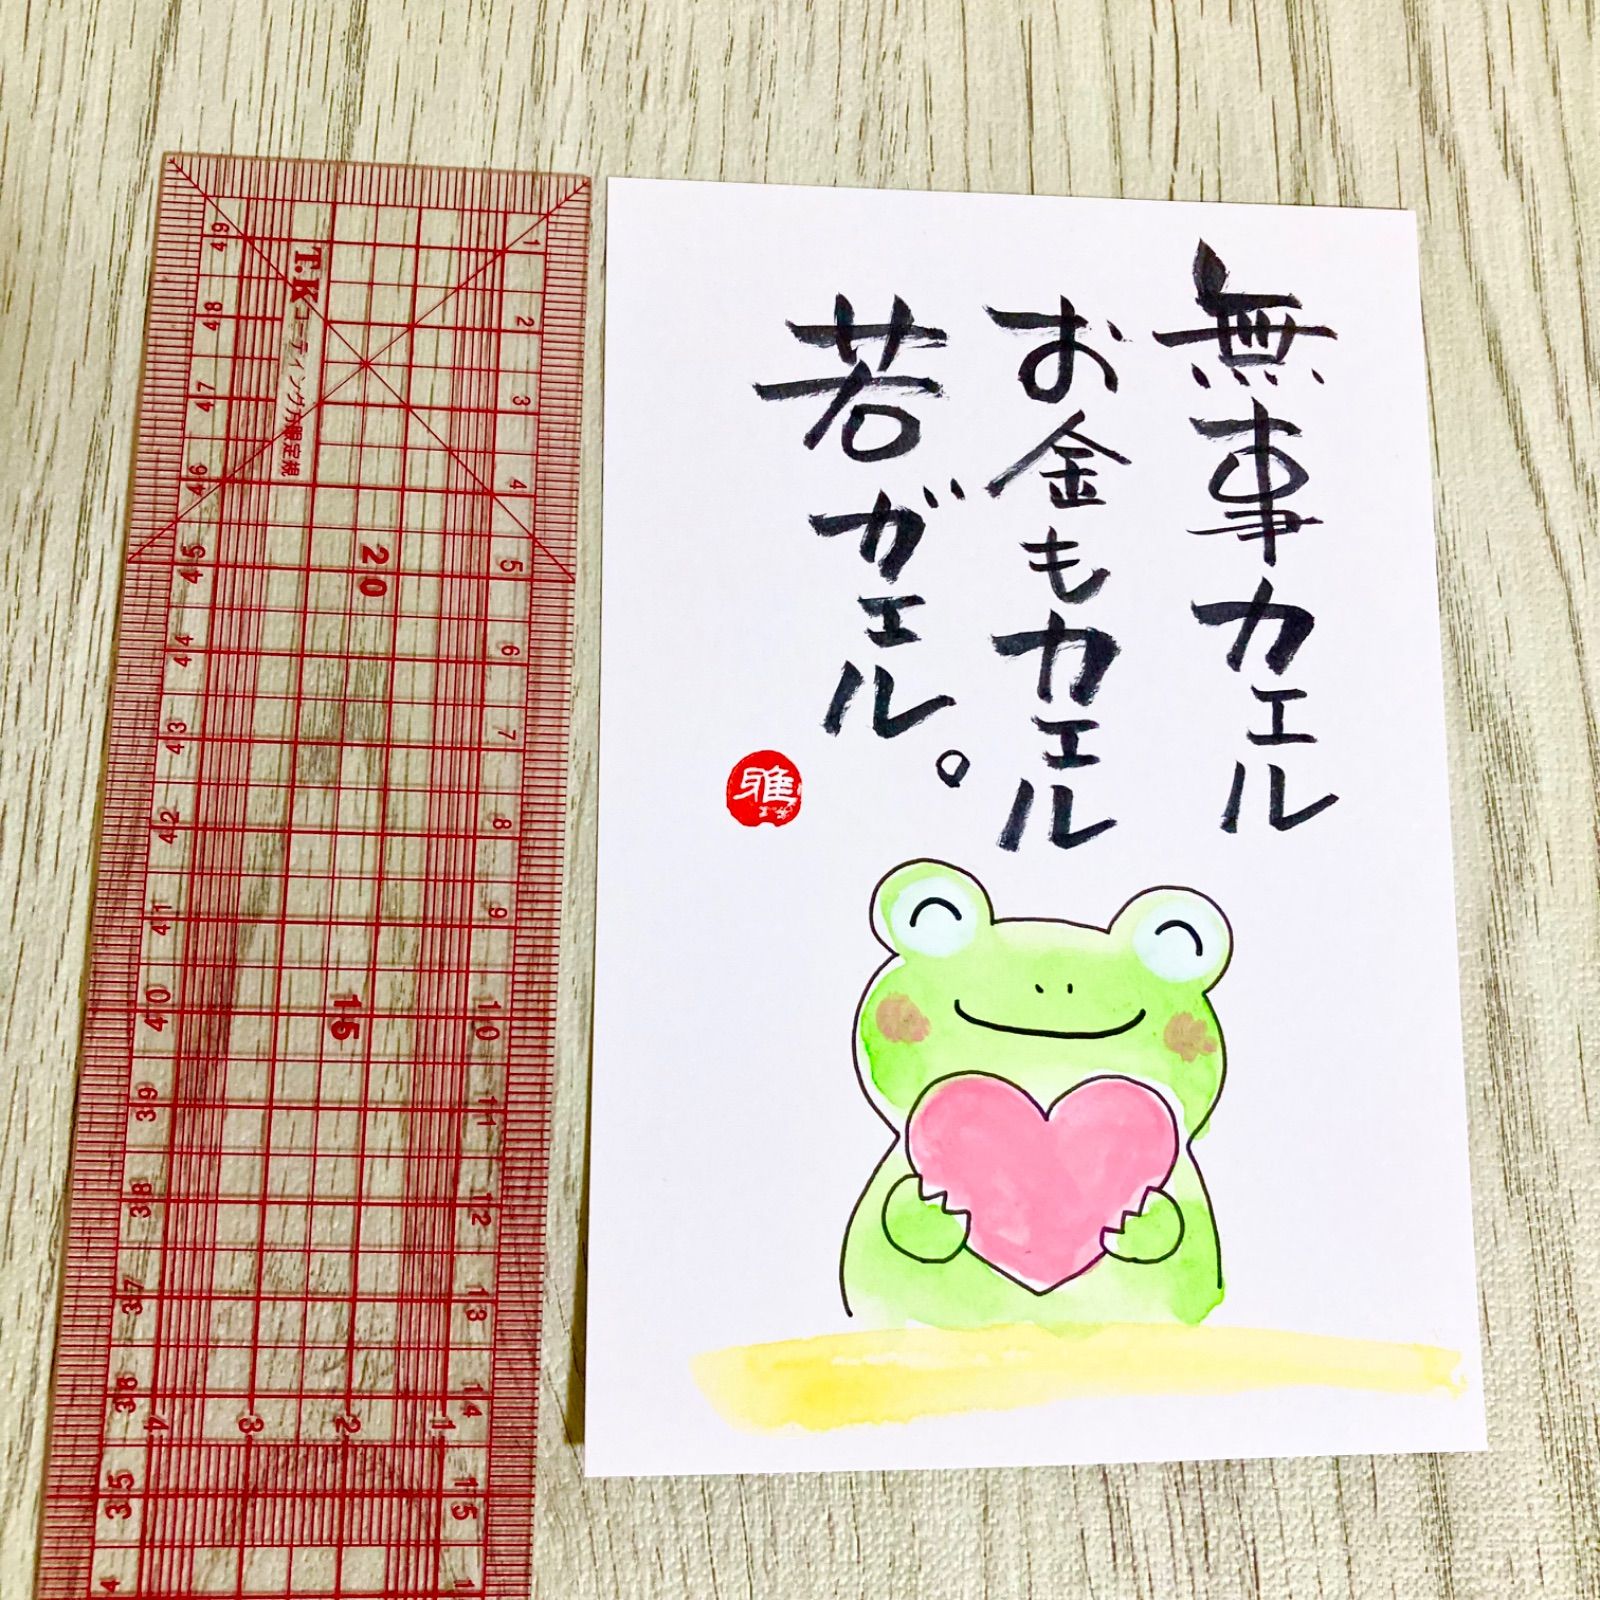 無事カエル
お金もカエル
若ガエル。
雅
T.Kコーティング方眼定規
1
2
3
4
5
6
7
8
9
10
11
12
13
14
15
49
48
47
46
45
44
43
42
41
40
39
38
37
36
35
4
20
15
4
3
2
1
1